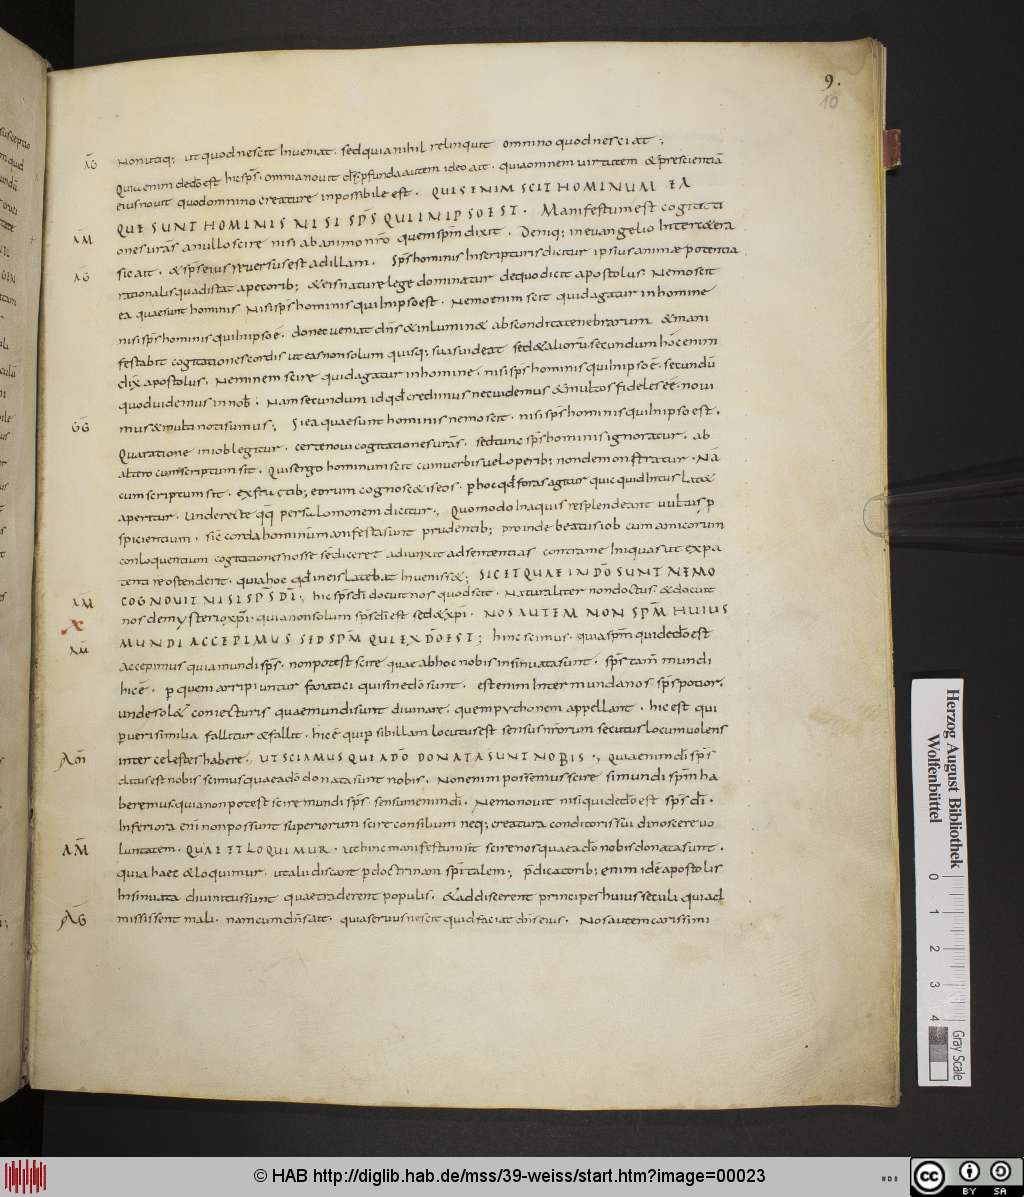 9.
10
ĀG Non utiq; ut quod nescit Inveniat. sed quia nihil relinquit omnino quod nesciat;
Qui venim dedō est hic sp̄s. omnia novit
eius novit quod omnino creature inpossibile est. QUIS ENIM SCIT HOMINUM EA
QUE SUNT HOMINIS NISI SP̄S QUI IN IPSO EST. Manifestum est cogitati
ĀM ones urās a nullo scire nisi ab animo nr̄o quem sp̄m dixit. Deniq; in evangelio
ĀG sic ait. & sp̄s eius reversus est ad illam. Sp̄s hominis In scripturis dicitur ipsius animæ potentia
rationalis qua distat a pecorib; & eis nature lege dominatur de quo dicit apostolus Nemo scit
ea quae sunt hominis Nisi sp̄s hominis qui In ipso est. Nemo enim scit quid agatur in homine
nisi sp̄s hominis qui In ipso ē. donec veniat dn̄s & inluminæ abscondita tenebrarum & mani
festabit cogitationes cordis ut eas non solum quisq; suas videat sed & aliorū. secundum hōc enim
dix̄ apostolus. Neminem scire quid agatur in homine. nisi sp̄s hominis qui In ipso ē. secundū
quod videmus in nob̄. Nam secundum id qd̄ credimus nec videmus & multos fideles eē. novi
ḠG mus & multi noti sumus; Si ea quae sunt hominis nemo scit. nisi sp̄s hominis qui In ipso est.
Qua ratione in iob legitur. certe novi cogitationes urās. sed tunc sp̄s hominis ignoratur. ab
altero cum scriptum sit. Quis ergo hominum scit cum verbis vel operib; non demonstratur. Nā
cum scriptum sit. ex fructib; eorum cognoscetis eos. p hoc qd̄ foras agitur quic quid Intus latæ
aperitur. Unde recte qq̄ per salomonem dicitur; Quomodo In aquis resplendeant vultus p
spicientium. sic̄ corda hominum manifesta sunt prudentib; proinde beatus iob cum amicorum
conloquentium cogitationes nosse se diceret adiunxit ad sententias contra me Iniquas ut ex pa
tenti re ostenderit. quia hoc qd̄ in eis latebat Invenissæ; SICET QUAE IN DŌ SUNT NEMO
ĀM COGNOVIT NISI SP̄S DĪ; hic sp̄s dī docuit nos quod scit. Naturaliter non doctus. & docuit
nos de mysterio xp̄i. quia non solum sp̄s dī est sed & xp̄i. NOS AUTEM NON SP̄M HUIUS
MUNDI ACCEPIMUS SED SP̄M QUI EX DŌ EST; hinc scimus. quia sp̄m qui dedō est
accepimus quia mundi sp̄s. non potest scire quae ab hoc nobis insinuata sunt. sp̄s tam̄ mundi
hic ē. p quem arripiuntur fanatici qui sine dō sunt. est enim Inter mundanos sp̄s potior.
unde solæ coniecturis quae mundi sunt divinare. quem pythonem appellant. hic est qui
p verisimilia fallitur & fallit. hic ē qui p sibillam locutus est sensus nr̄orum secutus locum volens
inter celestes habere. UT SCIAMUS QUE A DŌ DONATA SUNT NOBIS; Quia enim dī sp̄s
datus est nobis scimus quae a dō donata sunt nobis. Non enim possemus scire si mundi sp̄m ha
beremus quia non potest scire mundi sp̄s sensum enim dī. Nemo novit nisi qui dedō est sp̄s dī.
Inferiora eni non possunt superiorum scire consilium neq; creatura conditoris sui dinoscere vo
ĀM luntatem. QUAE ET LOQUIMUR. ut hinc manifestum sit scire nos quae a dō nobis donata sunt.
quia haec & loquimur. ut alii discant p doctrinam sp̄i talem; p̄dicatorib; enim idē apostolis
Insinuata divinitus sunt quae traderent populis. & addiscerent principes huius seculi quia d
ĀG missi ssent mali. nam cum dn̄s ait. quia servus nescit quid faciat dn̄s eius. Nos autem carissimi
Herzog August Bibliothek
Wolfenbüttel
0 1 2 3 4
Gray Scale
© HAB http://diglib.hab.de/mss/39-weiss/start.htm?image=00023
cc BY SA